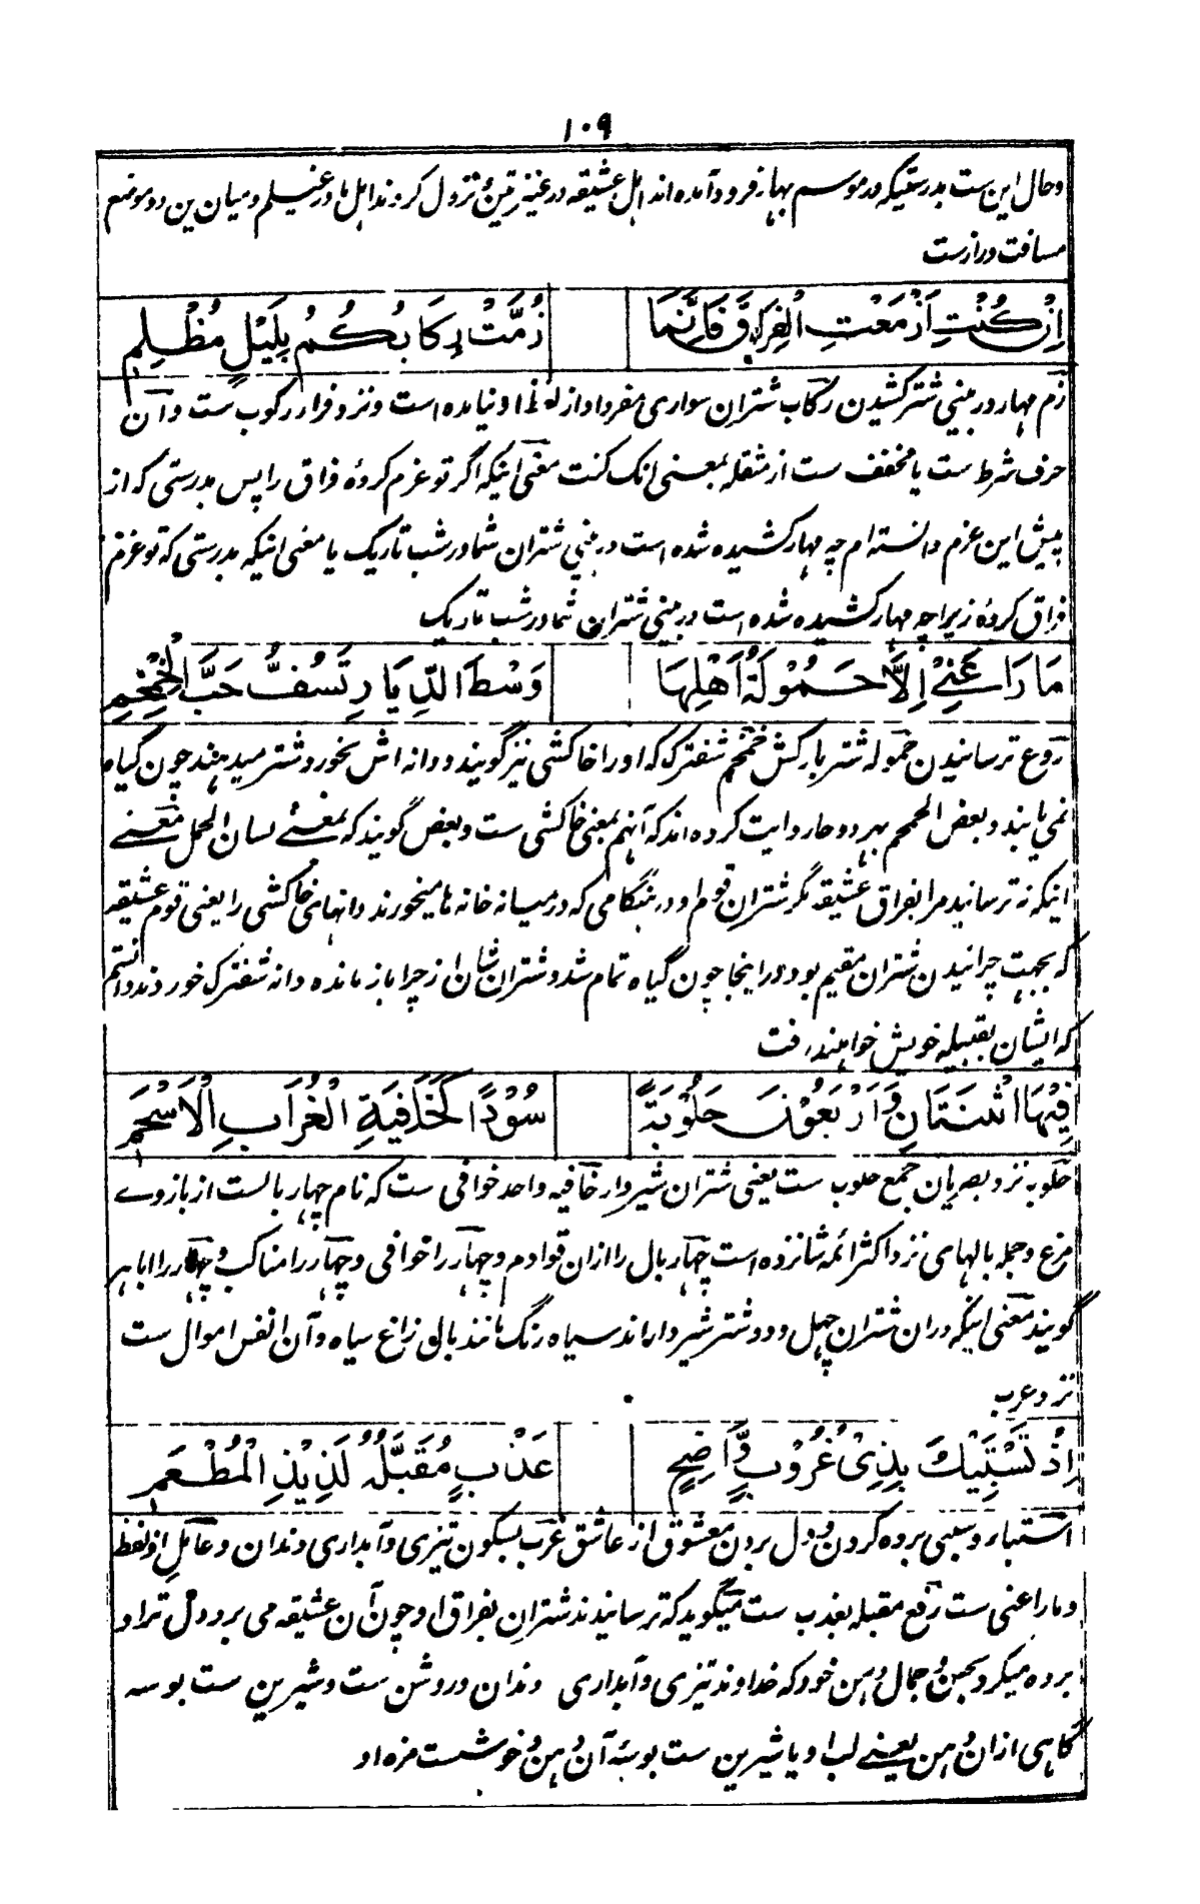 ۱۰۹
وحال این ست بدرستیکه در موسم بهار فرود آمده اند اهل عشیقه در عنیزتین و نزول کردند اهل ما در غیلم و میان ین دو موضع
مسافت دراز ست
اِنْ كُنْتِ اَزْمَعْتِ الْفِرَاقَ فَاِنَّمَا زُمَّتْ رِكَابُكُمُ بِلَيْلٍ مُظْلِمِ
زم مهار در بینی شتر کشیدن رکاب شتران سواری مفرد او از لفظ او نیامده است ونزد فرا در رکوب ست وآن
حرف شرط ست یا مخفف ست از مثقله بمعنی انک کنت معنی اینکه اگر تو عزم کردهٔ فراق را پس بدرستی که از
پیش این عزم دانسته ام چه مهار کشیده شده است در بینی شتران شما در شب تاریک یا معنی اینکه بدرستی که تو عزم
فراق کردهٔ زیرا چه مهار کشیده شده است در بینی شتران شما در شب تاریک
مَا رَاعَنِيْ اِلَّا حَمُوْلَةُ اَهْلِهَا وَسْطَ الدِّيَارِ تَسُفُّ حَبَّ الْخِمْخِمِ
روع ترسانیدن حموله شتر بارکش خمخم شفترک که اورا خاکشی نیز گویند و دانه اش بخورد شتر میدهند چون گیاه
نمی یابند و بعض الحمحم بهر دو حا روایت کرده اند که آنهم بمعنی خاکشی ست و بعض گویند که بمعنے لسان الحمل معنے
اینکه نه ترسانید مرا بفراق عشیقه مگر شتران قوم او در هنگامی که در میانه خانه ها میخورند دانهای خاکشی را یعنی قوم عشیقه
که بجهت چرانیدن شتران مقیم بود در اینجا چون گیاه تمام شد و شتران شان از چرا باز مانده دانه شفترک خوردند دانستم
که ایشان بقبیله خویش خواهند رفت
فِيْهَا اثْنَتَانِ وَاَرْبَعُوْنَ حَلُوْبَةً سُوْدًا كَخَافِيَةِ الْغُرَابِ الْاَسْحَمِ
حلوبه نزد بصریان جمع حلوب ست یعنی شتران شیردار خافیه واحد خوافی ست که نام چهار بالست از بازوے
مرغ وجمله بالهای نزد اکثر ائمه شانزده است چهار بال را ازان قوادم و چهار را خوافی و چهار را مناکب و چهار را اباهر
گویند معنی اینکه دران شتران چهل و دو شتر شیر دار اند سیاه رنگ مانند بالی زاغ سیاه و آن انفس اموال ست
نزد عرب
اِذْ تَسْتَبِيْكَ بِذِيْ غُرُوْبٍ وَّاضِحٍ عَذْبٍ مُقَبَّلُهُ لَذِيْذِ الْمَطْعَمِ
استباء و سبی برده کردن و دل بردن معشوق از عاشق غرب بسکون تیزی و آبداری دندان و عامل اذ لفظ
و ما راعنی ست رفع مقبله بعذب ست میگوید که ترسانیدند شتران بفراق او چون آن عشیقه می برد دل ترا و
برده میکرد بحسن و جمال دهن خود که خداوند تیزی و آبداری دندان و روشن ست و شیرین ست بوسه
گاهی ازان دهن یعنے لب او یا شیرین ست بوسهٔ آن دهن و خوشست مزه او